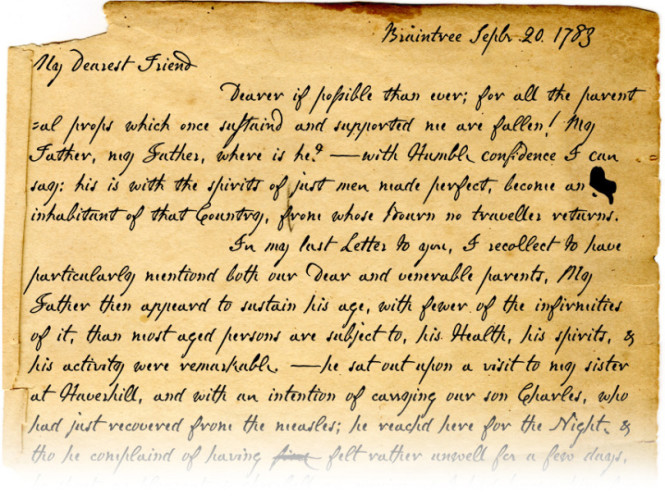 Braintree Sepbr. 20. 1783
My Dearest Friend
Dearer if poſsible than ever; for all the parent
=al props which once suſtaind and supported me are fallen! My
Father, my Father, where is he? —with Humble confidence I can
say: his is with the spirits of just men made perfect, become an
inhabitant of that Country, from whose Bourn no traveller returns.
In my last Letter to you, I recollect to have
particularly mentiond both our Dear and venerable parents, My
Father then appeard to sustain his age, with fewer of the infirmities
of it, than most aged persons are subject to, his Health, his spirits, &
his activity were remarkable. —he sat out upon a visit to my sister
at Haverhill, and with an intention of carrying our son Charles, who
had just recovered from the measles; he reachd here for the Night, &
tho he complaind of having felt rather unwell for a few days,